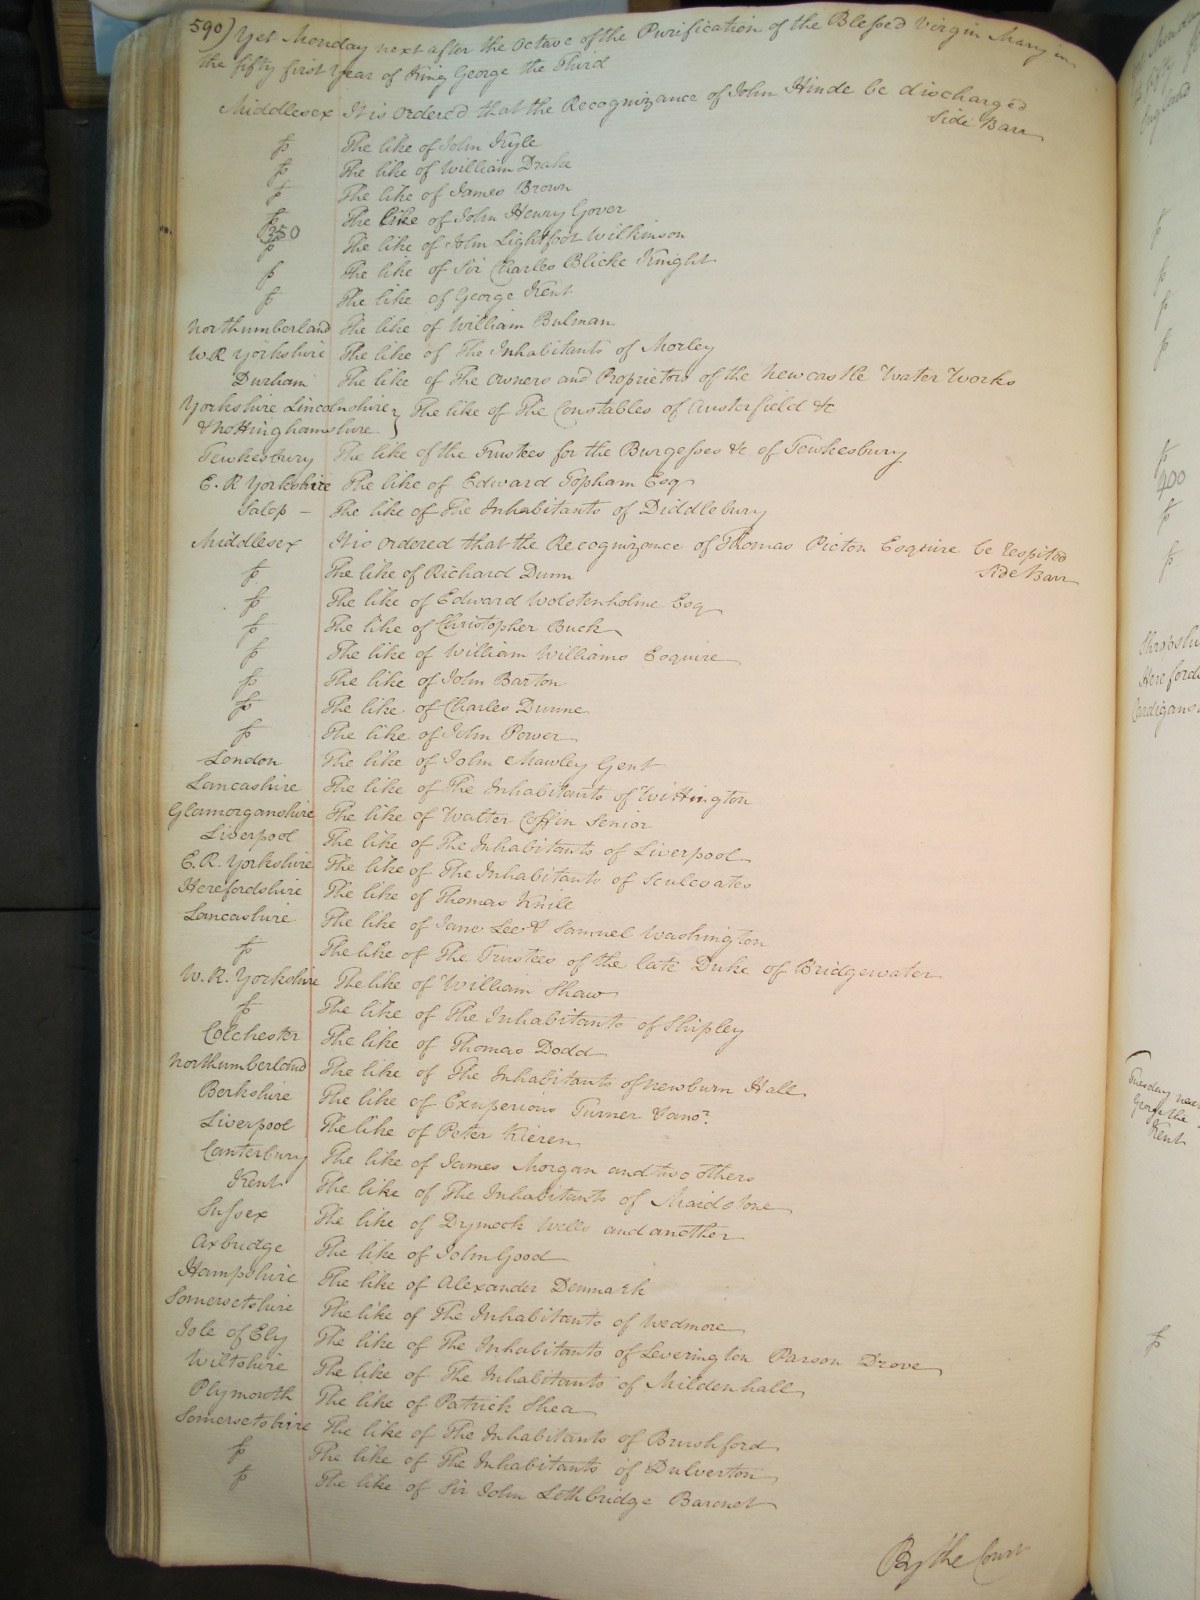 590) Yet Monday next after the Octave of the Purification of the Blessed Virgin Mary in
the fifty first Year of King George the Third
Middlesex It is Ordered that the Recognizance of John Hinde be discharged
Side Barr
The like of John Kyle
The like of William Drake
The like of James Brown
The like of John Henry Gover
350
The like of John Lightfoot Wilkinson
The like of Sir Charles Blicke Knight
The like of George Kent
Northumberland The like of William Bulman
W.R Yorkshire The like of The Inhabitants of Morley
Durham The like of The Owners and Proprietors of the Newcastle Water Works
Yorkshire Lincolnshire } The like of The Constables of Austerfield &c
& Nottinghamshire
Tewkesbury The like of the Trustees for the Burgesses &c of Tewkesbury
E. R Yorkshire The like of Edward Topham Esq
Salop – The like of The Inhabitants of Diddlebury
Middlesex It is Ordered that the Recognizance of Thomas Picton Esquire be respited
Side Barr
The like of Richard Dunn
The like of Edward Wolstenholme Esq
The like of Christopher Buck
The like of William Williams Esquire
The like of John Barton
The like of Charles Dunne
The like of John Power
London The like of John Mawley Gent
Lancashire The like of The Inhabitants of Wittington
Glamorganshire The like of Walter Coffin Senior
Liverpool The like of The Inhabitants of Liverpool
E. R. Yorkshire The like of The Inhabitants of Sculcoates
Herefordshire The like of Thomas Knile
Lancashire The like of Jane Lee & Samuel Washington
The like of The Trustees of the late Duke of Bridgewater
W. R. Yorkshire The like of William Shaw
The like of The Inhabitants of Shipley
Colchester The like of Thomas Dodd
Northumberland The like of The Inhabitants of Newburn Hall
Berkshire The like of Exuperious Turner & anor.
Liverpool The like of Peter Kieren
Canterbury The like of James Morgan and two others
Kent The like of The Inhabitants of Maidstone
Sussex The like of Dymock Wells and another
Axbridge The like of John Good
Hampshire The like of Alexander Denmark
Somersetshire The like of The Inhabitants of Wedmore
Isle of Ely The like of The Inhabitants of Leverington Parson Drove
Wiltshire The like of The Inhabitants of Mildenhall
Plymouth The like of Patrick Shea
Somersetshire The like of The Inhabitants of Brushford
The like of The Inhabitants of Dulverton
The like of Sir John Lethbridge Baronet
By the Court
400
Tuesday
George the
Kent